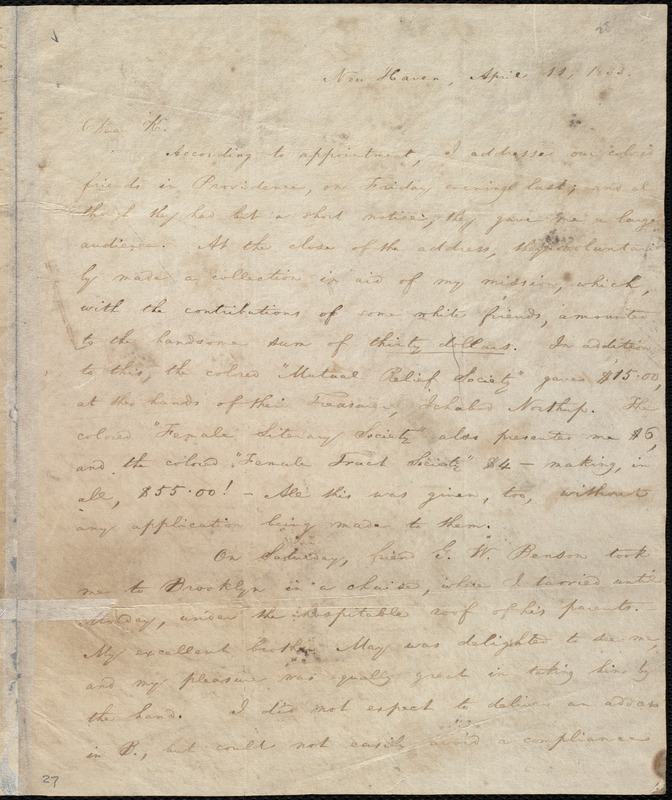 New Haven, April 11, 1833.
Dear K.
According to appointment, I addressed our colored
friends in Providence, on Friday evening last; and al
though they had but a short notice, they gave me a large
audience. At the close of the address, they voluntari
ly made a collection in aid of my mission, which,
with the contributions of some white friends, amounted
to the handsome sum of thirty dollars. In addition
to this, the colored "Mutual Relief Society" gave $15.00,
at the hands of their Treasurer, Ichabod Northup. The
colored "Female Literary Society" also presented me $6,
and the colored "Female Tract Society" $4 — making, in
all, $55.00! — All this was given, too, without
any application being made to them.
On Saturday, friend G. W. Benson took
me to Brooklyn in a chaise, where I tarried until
Monday, under the hospitable roof of his parents.
My excellent brother May was delighted to see me,
and my pleasure was equally great in taking him by
the hand. I did not expect to deliver an address
in B., but could not easily avoid a compliance
27